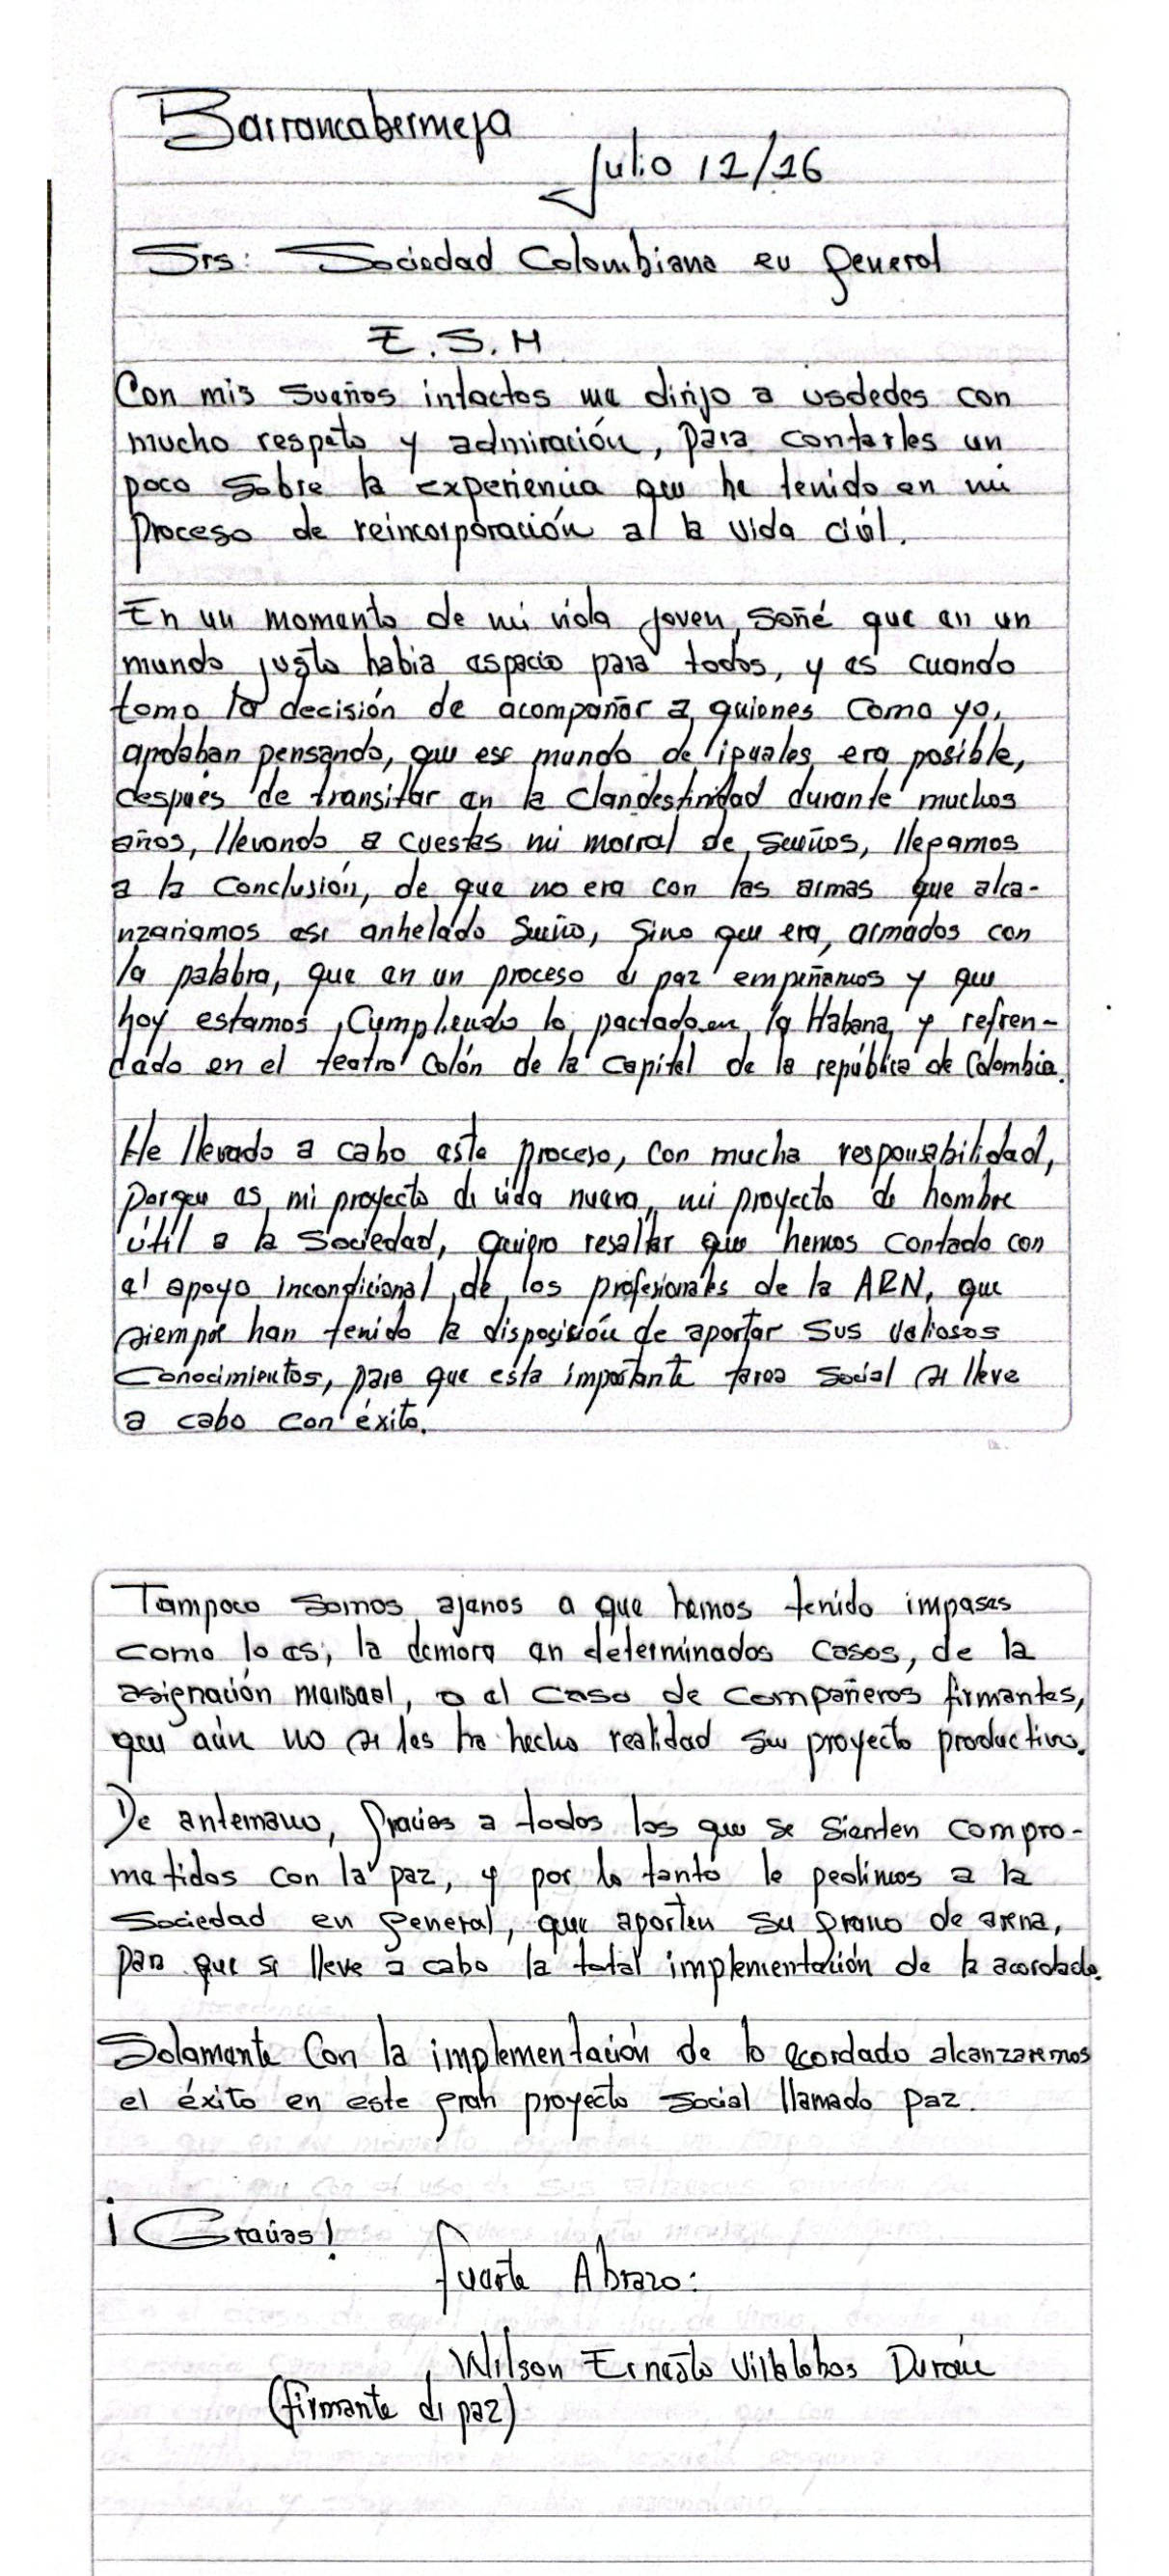 Barrancabermeja
Julio 12/26
Srs: Sociedad Colombiana en general
E.S.M
Con mis sueños intactos me dirijo a usdedes con
mucho respeto y admiración, para contarles un
poco sobre la experiencia que he tenido en mi
proceso de reincorporación a la vida civil.
En un momento de mi vida joven, soñé que en un
mundo justo habia espacio para todos, y es cuando
tomo la decisión de acompañar a quienes como yo,
andaban pensando, que ese mundo de iguales era posible,
despues de transitar en la clandestinidad durante muchos
años, llevando a cuestas mi morral de sueños, llegamos
a la conclusión, de que no era con las armas que alca-
nzariamos ese anhelado sueño, sino que era, armados con
la palabra, que en un proceso de paz empeñamos y que
hoy estamos, cumpliendo lo pactado en la Habana y refren-
dado en el teatro Colón de la capital de la república de Colombia.
He llevado a cabo este proceso, con mucha responsabilidad,
porque es mi proyecto de vida nueva, mi proyecto de hombre
útil a la sociedad, quiero resaltar que hemos contado con
el apoyo incondicional, de los profesionales de la ARN, que
siempre han tenido la disposición de aportar sus valiosos
conocimientos, para que esta importante tarea social se lleve
a cabo con éxito.
Tampoco somos ajenos a que hemos tenido impases
como lo es; la demora en determinados casos, de la
asignación mensual, o el caso de compañeros firmantes,
que aún no se les ha hecho realidad su proyecto productivo.
De antemano, gracias a todos los que se sienten compro-
metidos con la paz, y por lo tanto le pedimos a la
sociedad en general, que aporten su grano de arena,
para que se lleve a cabo la total implementación de lo acordado.
Solamente con la implementación de lo acordado alcanzaremos
el éxito en este gran proyecto social llamado paz.
¡Gracias!
fuerte Abrazo:
Wilson Ernesto Villalobos Durán
(firmante de paz)